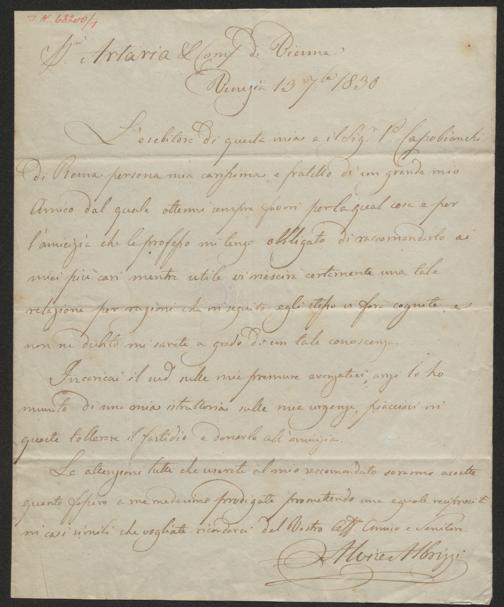 I.N. 68200/1
Sri Artaria & Comp di Vienna
Venezia 13 7bre 1830
L'esebitore di questa mia e il Sigr Capobianchi
di Roma persona mia carissima, e fratello di un grande mio
Amico dal quale ottenni sempre favori per la qual cosa e per
l'amicizia che le professo mi tengo obbligato di raccomandarlo ai
miei più cari mentre utile vi riescirà certamente una tale
relazione per ragioni che in seguito egli stesso vi farà cognite, e
non ne dubito mi sarete a grado di un tale conoscenza.
Incaricai il sudo sulle mie premure avanzatevi, anzi lo ho
munito di una mia istruttoria sulle mie urgenze, piacciavi in
queste tollerare il fastidio e donarlo all'amicizia.
Le attenzioni tutte che userete al mio raccomandato saranno accette
quanto fossero a me medesimo prodigate promettendo una eguale reciprocità
in casi simili che vogliate ricordarci del Vostro Affo Amico e Servitore
Alvise Albrizzi